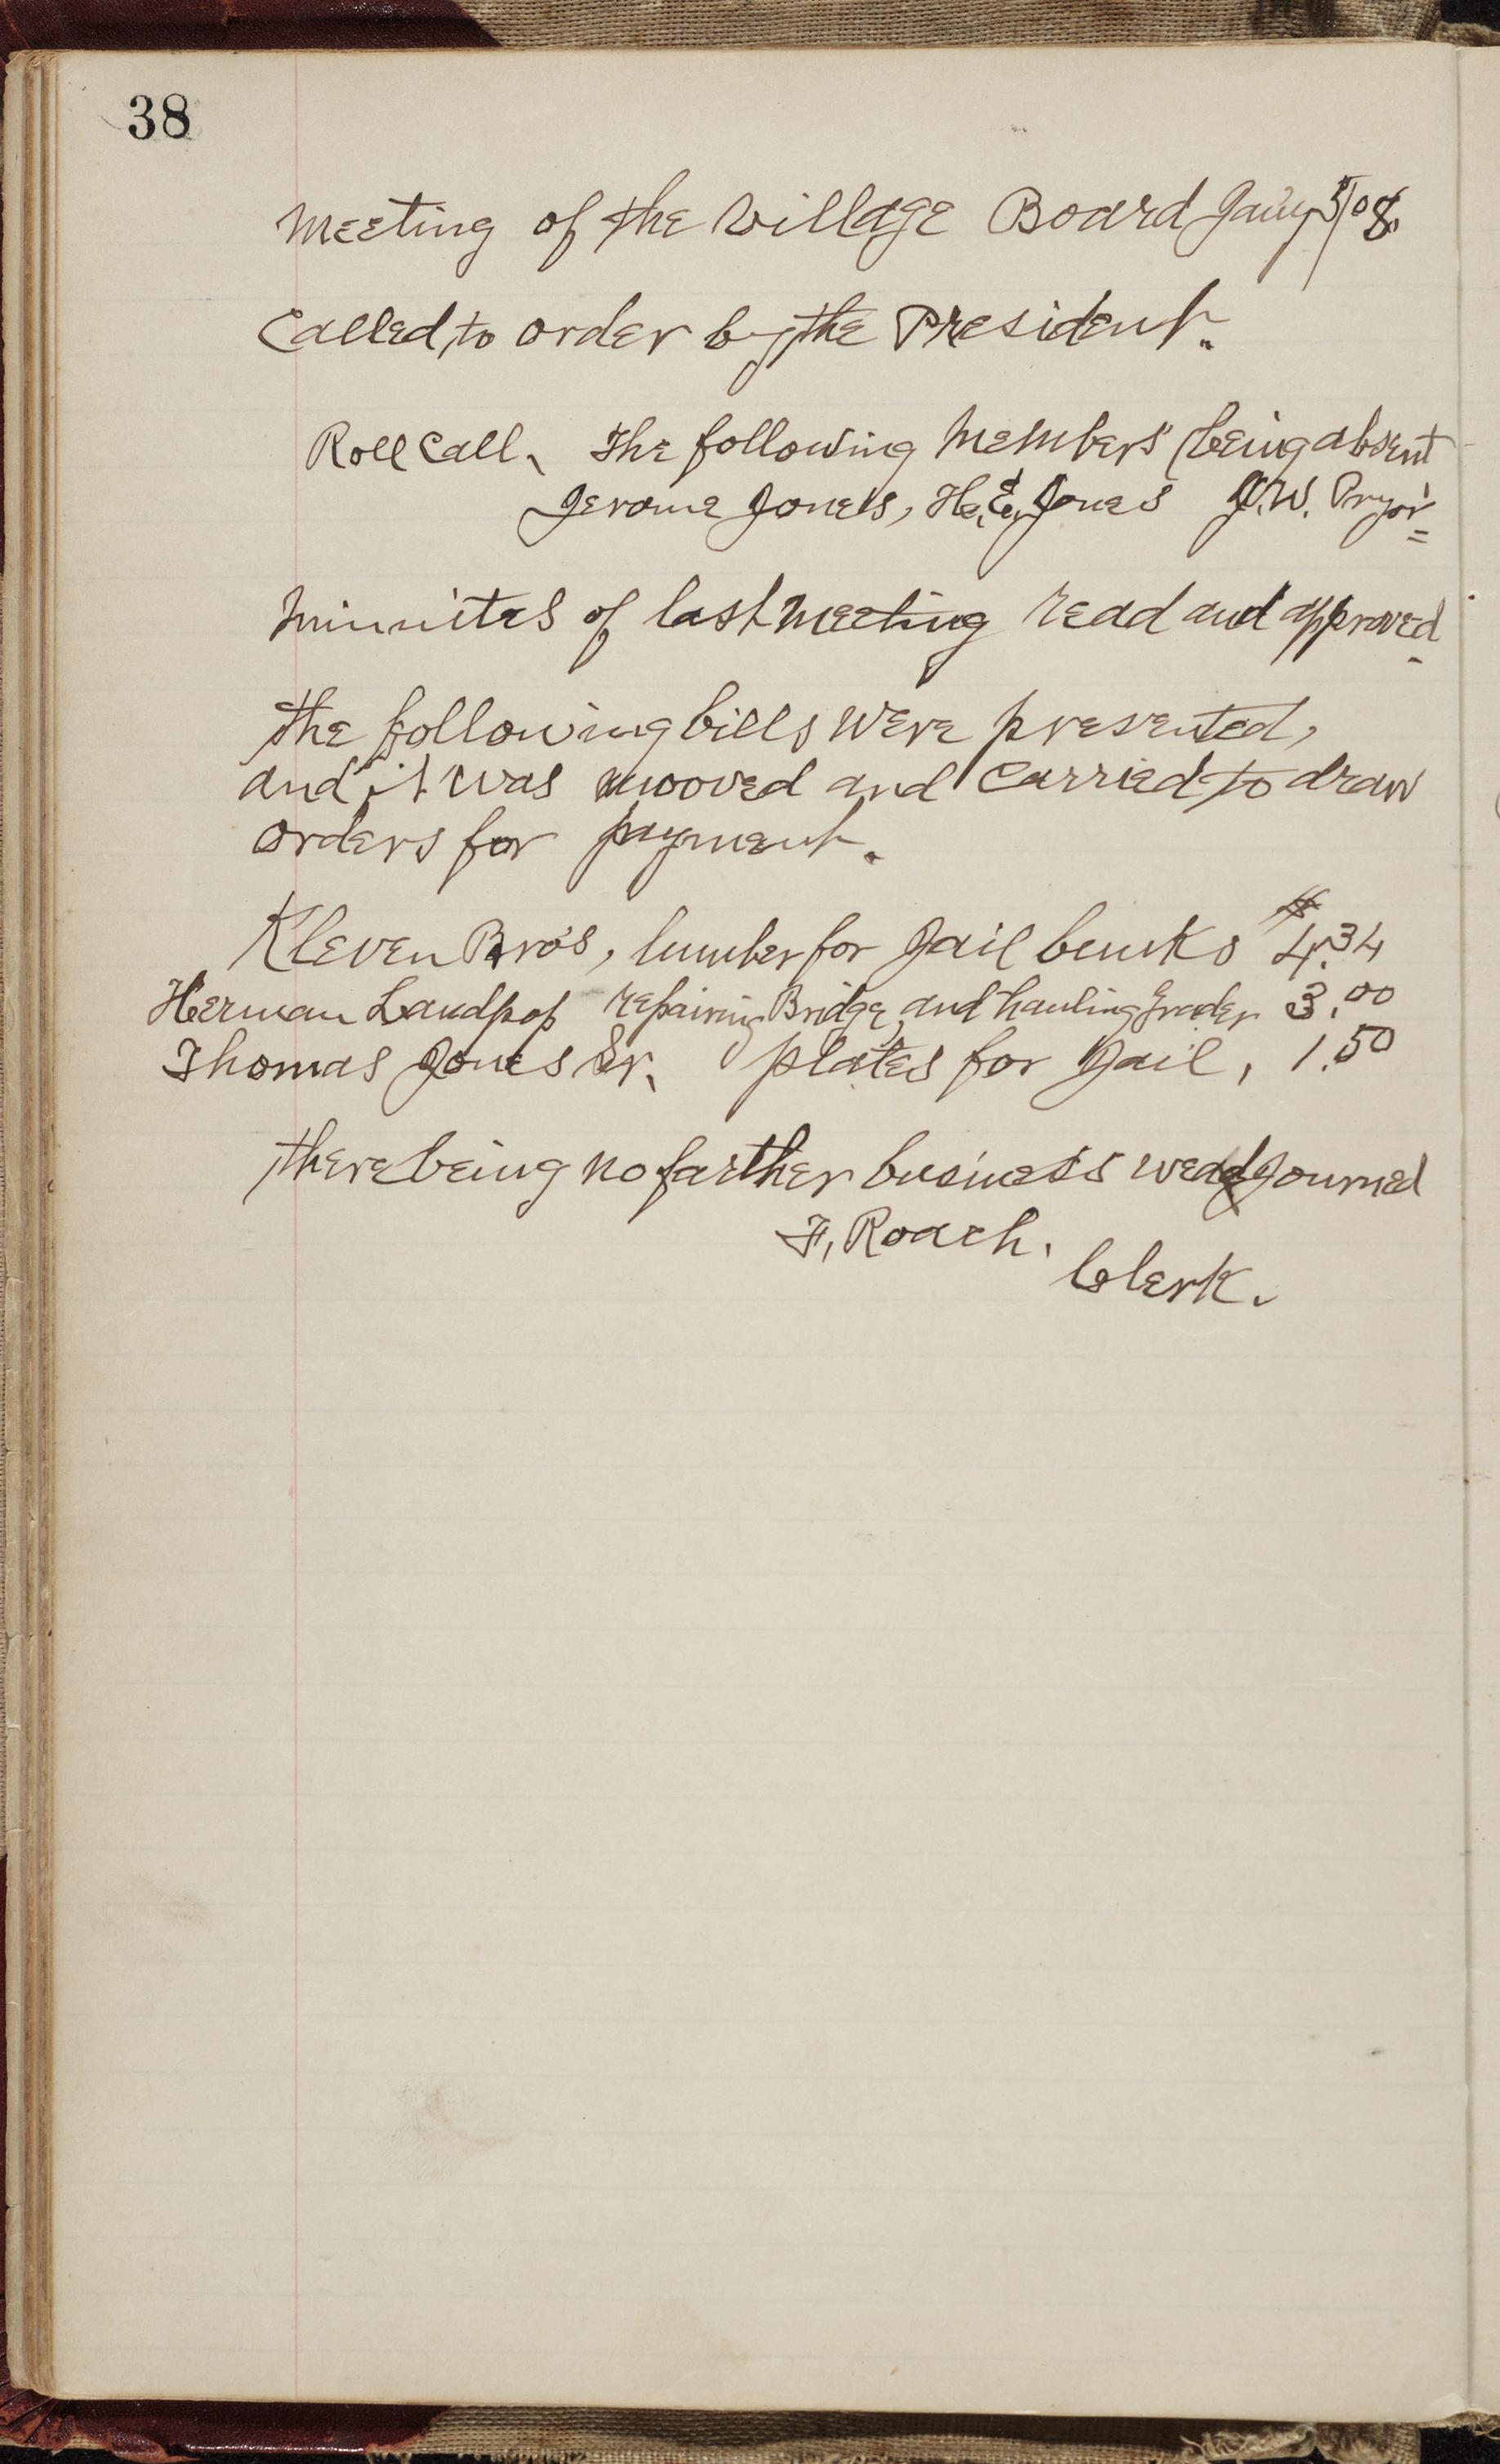 38
Meeting of the Village Board Jan'y 5/08.
Called to order by the President.
Roll Call. The following Members being absent
Jerome Jones, H. E. Jones J. W. Pryor
Minnites of last Meeting read and approved
the following bills were presented,
and it was mooved and Carried to draw
orders for payment.
Kleven Bro's, lumber for Jail bunks $4.34
Herman Landpop repairing Bridge, and hauling Grader 3.00
Thomas Jones Sr. plates for Jail, 1.50
there being no farther business we adjourned
F. Roach.
Clerk.